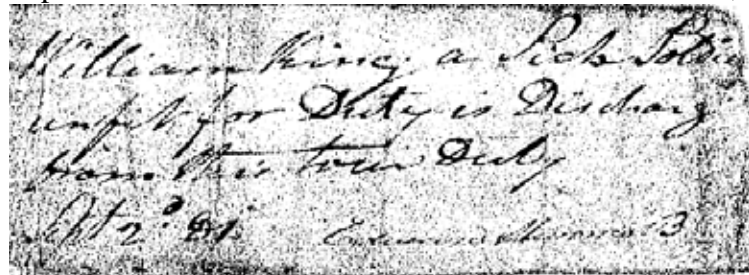 William King a Sick Soldie
unfit for Duty is Discharg
from this tour Duty
Sept 2d 81